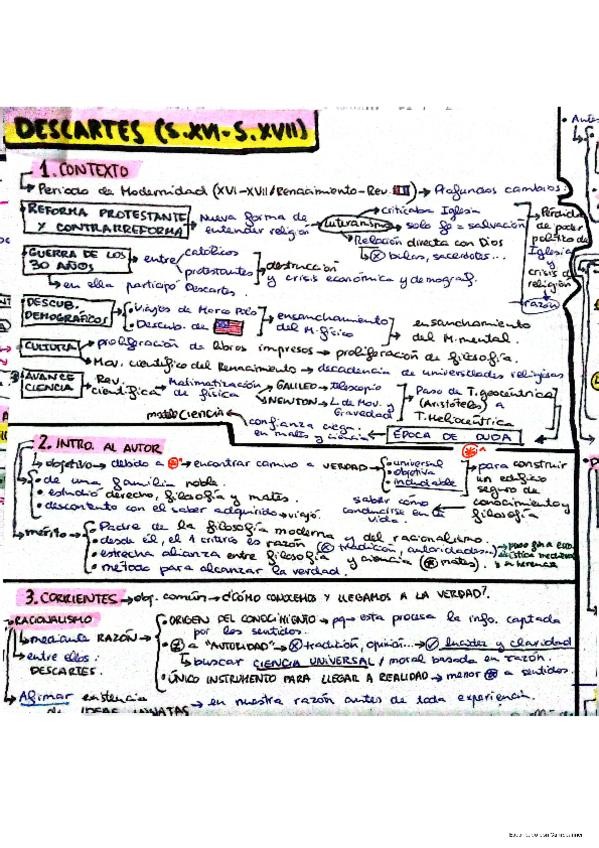 DESCARTES (S.XVI - S.XVII)
1. CONTEXTO
Periodo de Modernidad (XVI-XVII/Renacimiento-Rev. → Profundos cambios:
REFORMA PROTESTANTE Y CONTRARREFORMA → Nueva forma de entender religión → Luteranismo
criticaba Iglesia
solo fe = salvación
Relación directa con Dios
bulas, sacerdotes...
Pérdida de poder político de Iglesia y crisis de religión
razón
GUERRA DE LOS 30 AÑOS → entre católicos protestantes → destrucción y crisis económica y demograf.
en ella participó Descartes.
DESCUB. DEMOGRÁFICOS → Viajes de Marco Polo
Descub. de
ensanchamiento del M. físico → ensanchamiento del M. mental.
CULTURA → proliferación de libros impresos → proliferación de filosofía.
Mov. científico del Renacimiento → decadencia de universidades religiosas
AVANCE CIENCIA → Rev. científica → Matimatización de física
GALILEO → telescopio
NEWTON → L. de Mov. y Gravedad
Paso de T. geocéntrica (Aristóteles) a T. Heliocéntrica
ÉPOCA DE DUDA
confianza ciega en mates y ciencia
ciencia
2. INTRO. AL AUTOR
objetivo → debido a → encontrar camino a VERDAD
universal
objetiva
indudable
para construir un edificio seguro de conocimiento y filosofía
saber cómo conducirse en la vida.
• de una familia noble.
• estudió derecho, filosofía y mates.
• descontento con el saber adquirido → viajó.
mérito
• Padre de la filosofía moderna y del racionalismo.
• desde él, el 1 criterio es razón (tradición, autoridades...)
• estrecha alianza entre filosofía y ciencia (mates).
• método para alcanzar la verdad.
3. CORRIENTES → obj. común → ¿CÓMO CONOCEMOS Y LLEGAMOS A LA VERDAD?.
RACIONALISMO
mediante RAZÓN
entre ellos: DESCARTES.
• ORIGEN DEL CONOCIMIENTO → pq → esta procesa la info. captada por los sentidos.
a "AUTORIDAD" → tradición, opinión... → lucidez y claridad
buscar CIENCIA UNIVERSAL / moral basada en razón.
• ÚNICO INSTRUMENTO PARA LLEGAR A REALIDAD → menor a sentidos.
Afirmar existencia de IDEAS INNATAS → en nuestra razón antes de toda experiencia.